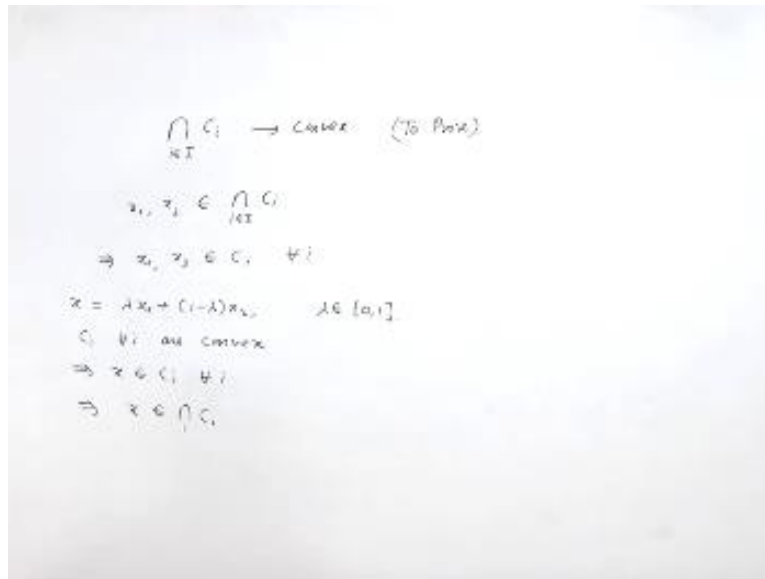 ⋂_{i∈I} C_i → convex (To Prove)
x₁, x₂ ∈ ⋂_{i∈I} C_i
⇒ x₁, x₂ ∈ C_i ∀ i
x = λx₁ + (1-λ)x₂, λ∈ [0,1]
C_i ∀i are convex
⇒ x ∈ C_i ∀ i
⇒ x ∈ ⋂ C_i